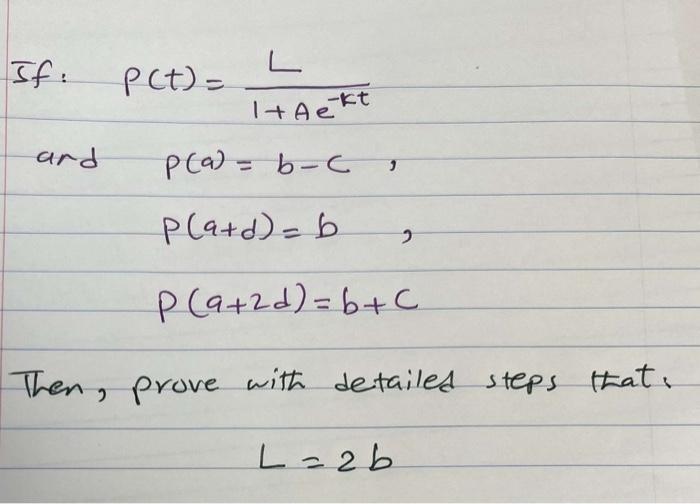 If: P(t) = L / (1 + A e^-kt)
and P(a) = b - c ,
P(a+d) = b ,
P(a+2d) = b + c
Then, prove with detailed steps that:
L = 2b